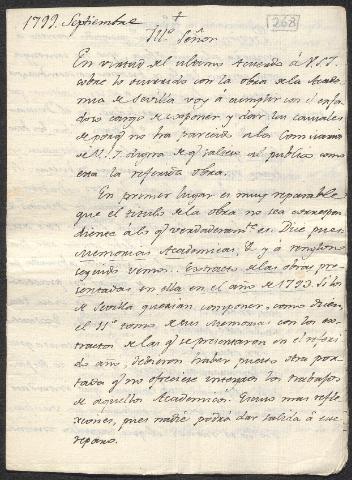 1799. Septiembre
268
Ill.o Señor
En virtud del ultimo Acuerdo de V.S.I.
sobre lo ocurrido con la obra de la Acade
mia de Sevilla voy á cumplir con el enfa
doso cargo de exponer y dar las causales
de porq.e no ha parecido á los Comisarios
de V.S.I. digna de q.e saliese al publico como
está la referida obra.
En primer lugar es muy reparable
que el titulo de la obra no sea correspon
diente á lo q.e verdaderam.te es. Dice pues
Memorias Academicas, &. y á renglon
seguido vemos. Extractos de las obras pre
sentadas en ella en el año de 1793. Si los
de Sevilla querian componer, como dicen,
el II.o tomo de sus Memorias con los ex
tractos de las q.e se presentaron en el referi
do año, debieron haber puesto otra por
tada q.e no ofreciese integros los trabajos
de aquellos Academicos. Omito mas refle
xiones, pues nadie podrá dar salida á este
reparo.